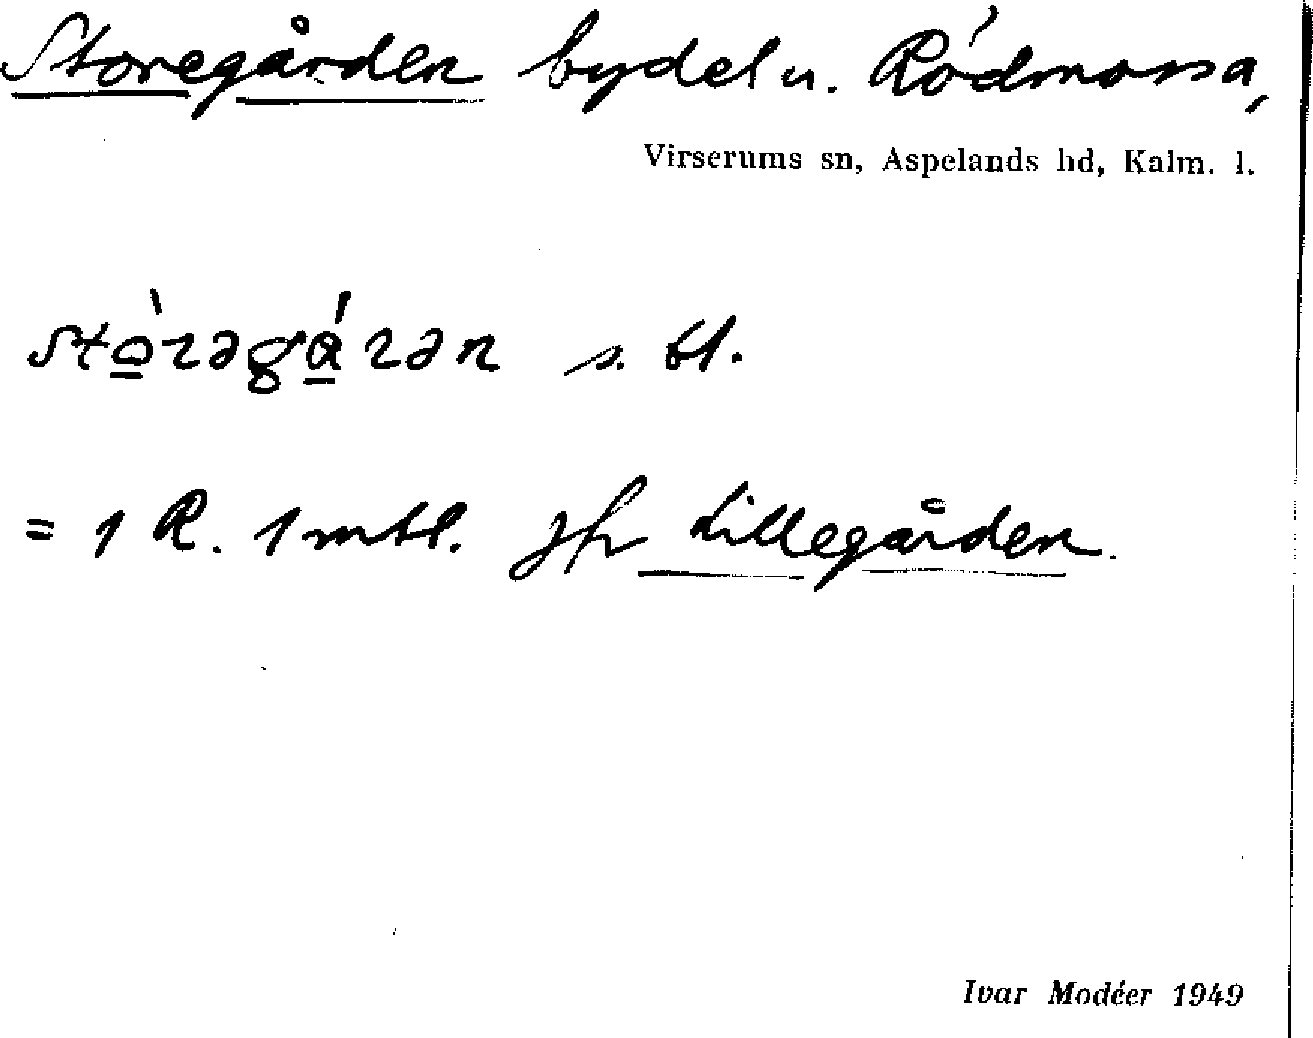 Storegården bydel u. Rödmossa,
Virserums sn, Aspelands hd, Kalm. l.
stò̱ꝛəgá̱ꝛən s. bl.
= 1 R. 1 mtl. jfr Lillegården.
Ivar Modéer 1949